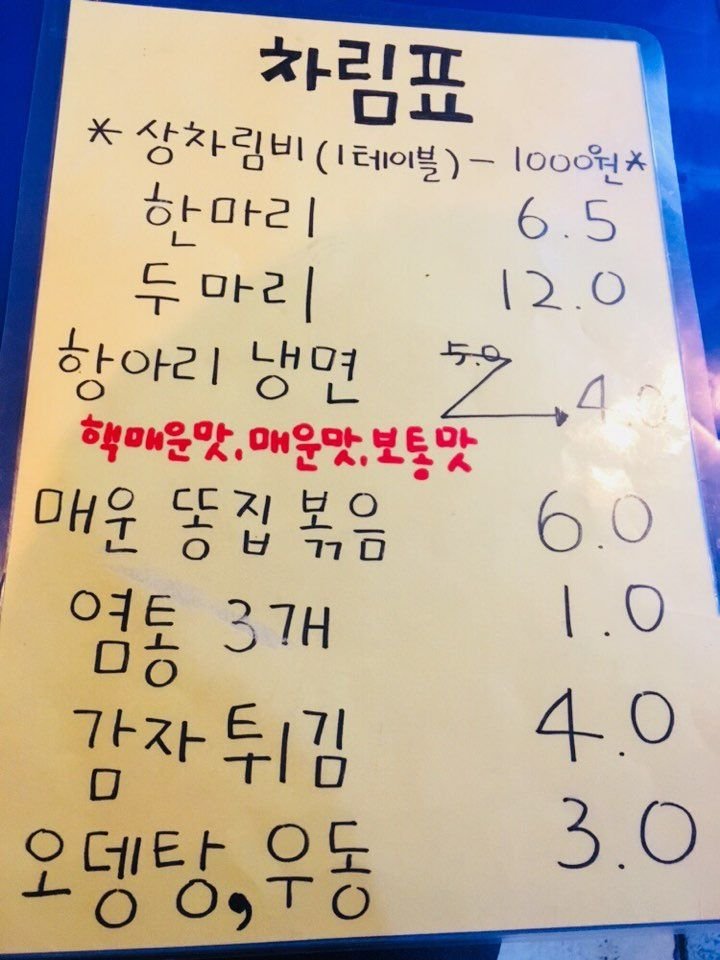 차림표
* 상차림비(1테이블) - 1000원 *
한마리 6.5
두마리 12.0
항아리 냉면 5.0 → 4.0
핵매운맛, 매운맛, 보통맛
매운 똥집 볶음 6.0
염통 3개 1.0
감자튀김 4.0
오뎅탕, 우동 3.0